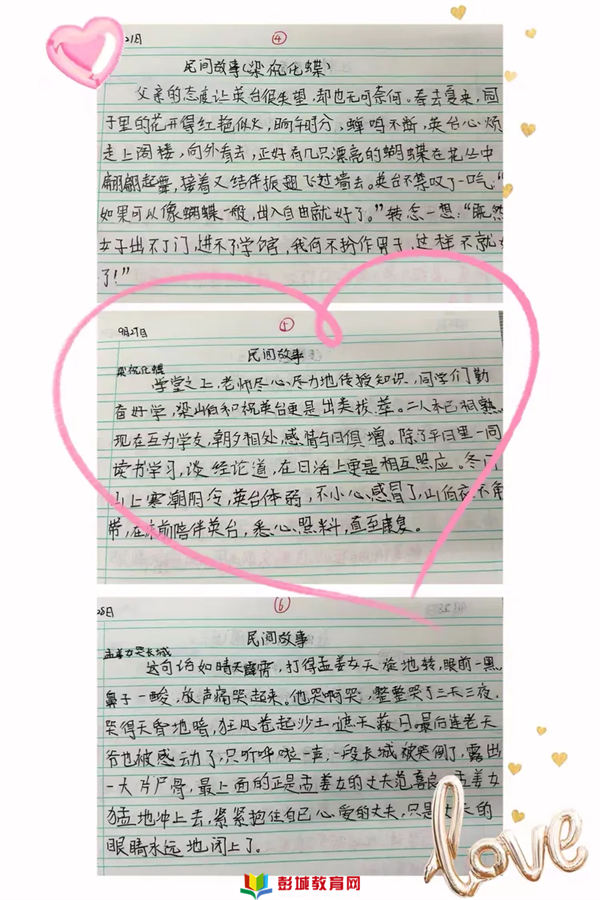 21日
④
民间故事(梁祝化蝶)
父亲的态度让英台很失望,却也无可奈何。春去夏来,园
子里的花开得红艳似火,晌午时分,蝉鸣不断,英台心烦
走上阁楼,向外看去,正好有几只漂亮的蝴蝶在花丛中
翩翩起舞,接着又结伴振翅飞过墙去。英台不禁叹了一口气,“
如果可以像蝴蝶一般,出入自由就好了。”转念一想:“既然
女子出不了门,进不了学馆,我何不扮作男子,这样不就
了!”
9月27日
⑤
民间故事
梁祝化蝶
学堂之上,老师尽心尽力地传授知识,同学们勤
奋好学,梁山伯和祝英台更是出类拔萃。二人本已相熟,
现在互为学友,朝夕相处,感情与日俱增。除了平日里一同
读书学习,谈经论道,在日活上更是相互照应。冬
山上寒潮阴冷,英台体弱,不小心感冒了,山伯衣不解
带,在床前陪伴英台,悉心照料,直至康复。
28日
⑥
民间故事
孟姜女哭长城
这句话如晴天霹雳,打得孟姜女天旋地转,眼前一黑,
鼻子一酸,放声痛哭起来。他哭啊哭,整整哭了三天三夜,
哭得天昏地暗,狂风卷起沙土遮天蔽日。最后连老天
爷也被感动了,只听哗啦一声,一段长城被哭倒了,露出
一大片尸骨,最上面的正是孟姜女的丈夫范喜良。孟姜女
猛地冲上去,紧紧抱住自己心爱的丈夫,只是丈夫的
眼睛永远地闭上了。
love
彭城教育网